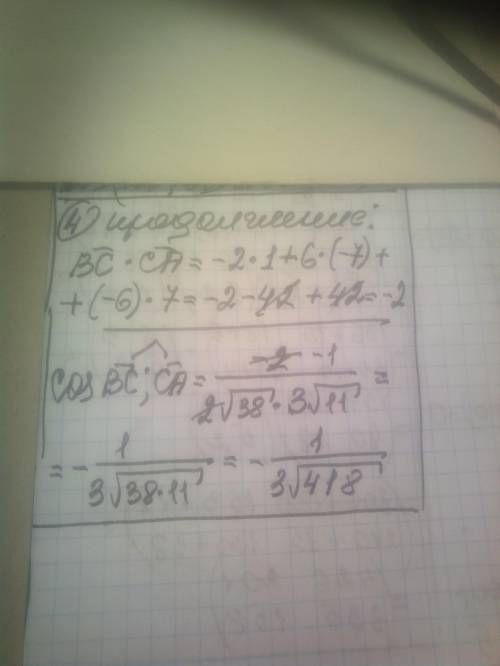 ④ продолжение:
BC̅ · CA̅ = -2·1+6·(-7)+
+(-6)·7=-2-42+42=-2
cos BC̅; CA̅ = -2 -1 / 2√38 · 3√11 =
= - 1 / 3√38·11 = - 1 / 3√418